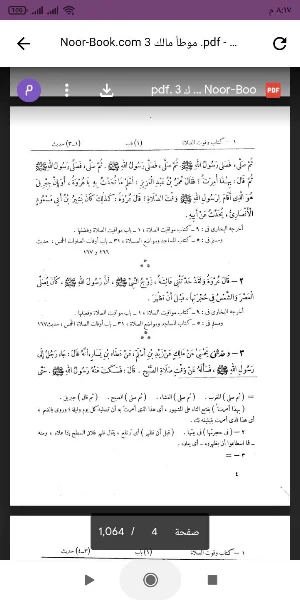 ٨:١٧ م
Noor-Book.com موطأ مالك 3 .pdf - ...
P
pdf. 3 ك ... Noor-Boo
PDF
١ - كتاب وقوت الصلاة (١) باب (١-٣) حديث
ثُمَّ صَلَّى، فَصَلَّى رَسُولُ اللهِ ﷺ. ثُمَّ صَلَّى، فَصَلَّى رَسُولُ اللهِ ﷺ. ثُمَّ صَلَّى، فَصَلَّى رَسُولُ اللهِ ﷺ
ثُمَّ قَالَ: بِهٰذَا أُمِرْتُ؛ فَقَالَ عُمَرُ بْنُ عَبْدِ الْعَزِيزِ: اعْلَمْ مَا تُحَدِّثُ بِهِ يَا عُرْوَةُ، أَوَ إِنَّ جِبْرِيلَ
هُوَ الَّذِي أَقَامَ لِرَسُولِ اللهِ ﷺ وَقْتَ الصَّلَاةِ؛ قَالَ عُرْوَةُ: كَذٰلِكَ كَانَ بَشِيرُ بْنُ أَبِي مَسْعُودٍ
الْأَنْصَارِيُّ، يُحَدِّثُ عَنْ أَبِيهِ.
أخرجه البخاري في: ٩ - كتاب مواقيت الصلاة، ١ - باب مواقيت الصلاة وفضلها.
ومسلم في: ٥ - كتاب المساجد ومواضع الصلاة، ٣١ - باب أوقات الصلوات الخمس، حديث
١٦٦ و ١٦٧
٢ - قَالَ عُرْوَةُ: وَلَقَدْ حَدَّثَتْنِي عَائِشَةُ، زَوْجُ النَّبِيِّ ﷺ، أَنَّ رَسُولَ اللهِ ﷺ، كَانَ يُصَلِّي
الْعَصْرَ وَالشَّمْسُ فِي حُجْرَتِهَا، قَبْلَ أَنْ تَظْهَرَ.
أخرجه البخاري في: ٩ - كتاب مواقيت الصلاة، ١ - باب مواقيت الصلاة وفضلها.
ومسلم في: ٥ - كتاب المساجد ومواضع الصلاة، ٣١ - باب أوقات الصلوات الخمس، حديث ١٦٧
٣ - وَحَدَّثَنِي يَحْيَى عَنْ مَالِكٍ عَنْ زَيْدِ بْنِ أَسْلَمَ، عَنْ عَطَاءِ بْنِ يَسَارٍ؛ أَنَّهُ قَالَ: جَاءَ رَجُلٌ إِلَى
رَسُولِ اللهِ ﷺ، فَسَأَلَهُ عَنْ وَقْتِ صَلَاةِ الصُّبْحِ. قَالَ: فَسَكَتَ عَنْهُ رَسُولُ اللهِ ﷺ. حَتَّى
= (ثم صلى) المغرب. (ثم صلى) العشاء. (ثم صلى) الصبح. (ثم قال) جبريل.
(بهذا أمرت)
٢ - (في حجرتها) في بيتها. (قبل أن تظهر) أي ترتفع
٣ - =
٤
صفحة 4 / 1,064
١ - كتاب وقوت الصلاة (١) باب (٣-٤) حديث